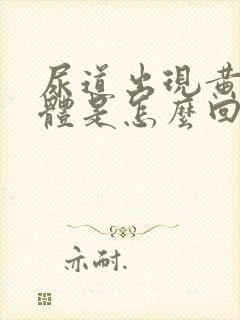 尿道出現黃
體是怎麼回
亦耐.